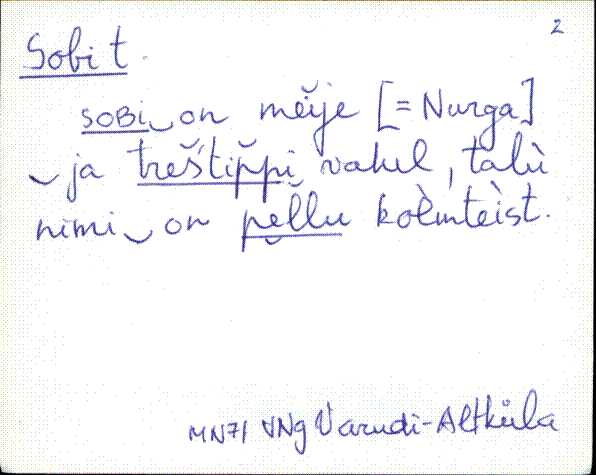 2
Sobi t.
soʙi‿on mĕije [= Nurga]
‿ja treš́tip̆pi vahel, talù
nimi‿on pĕl̆lu kolmteìst.
MN71 VNg Varudi-Altküla